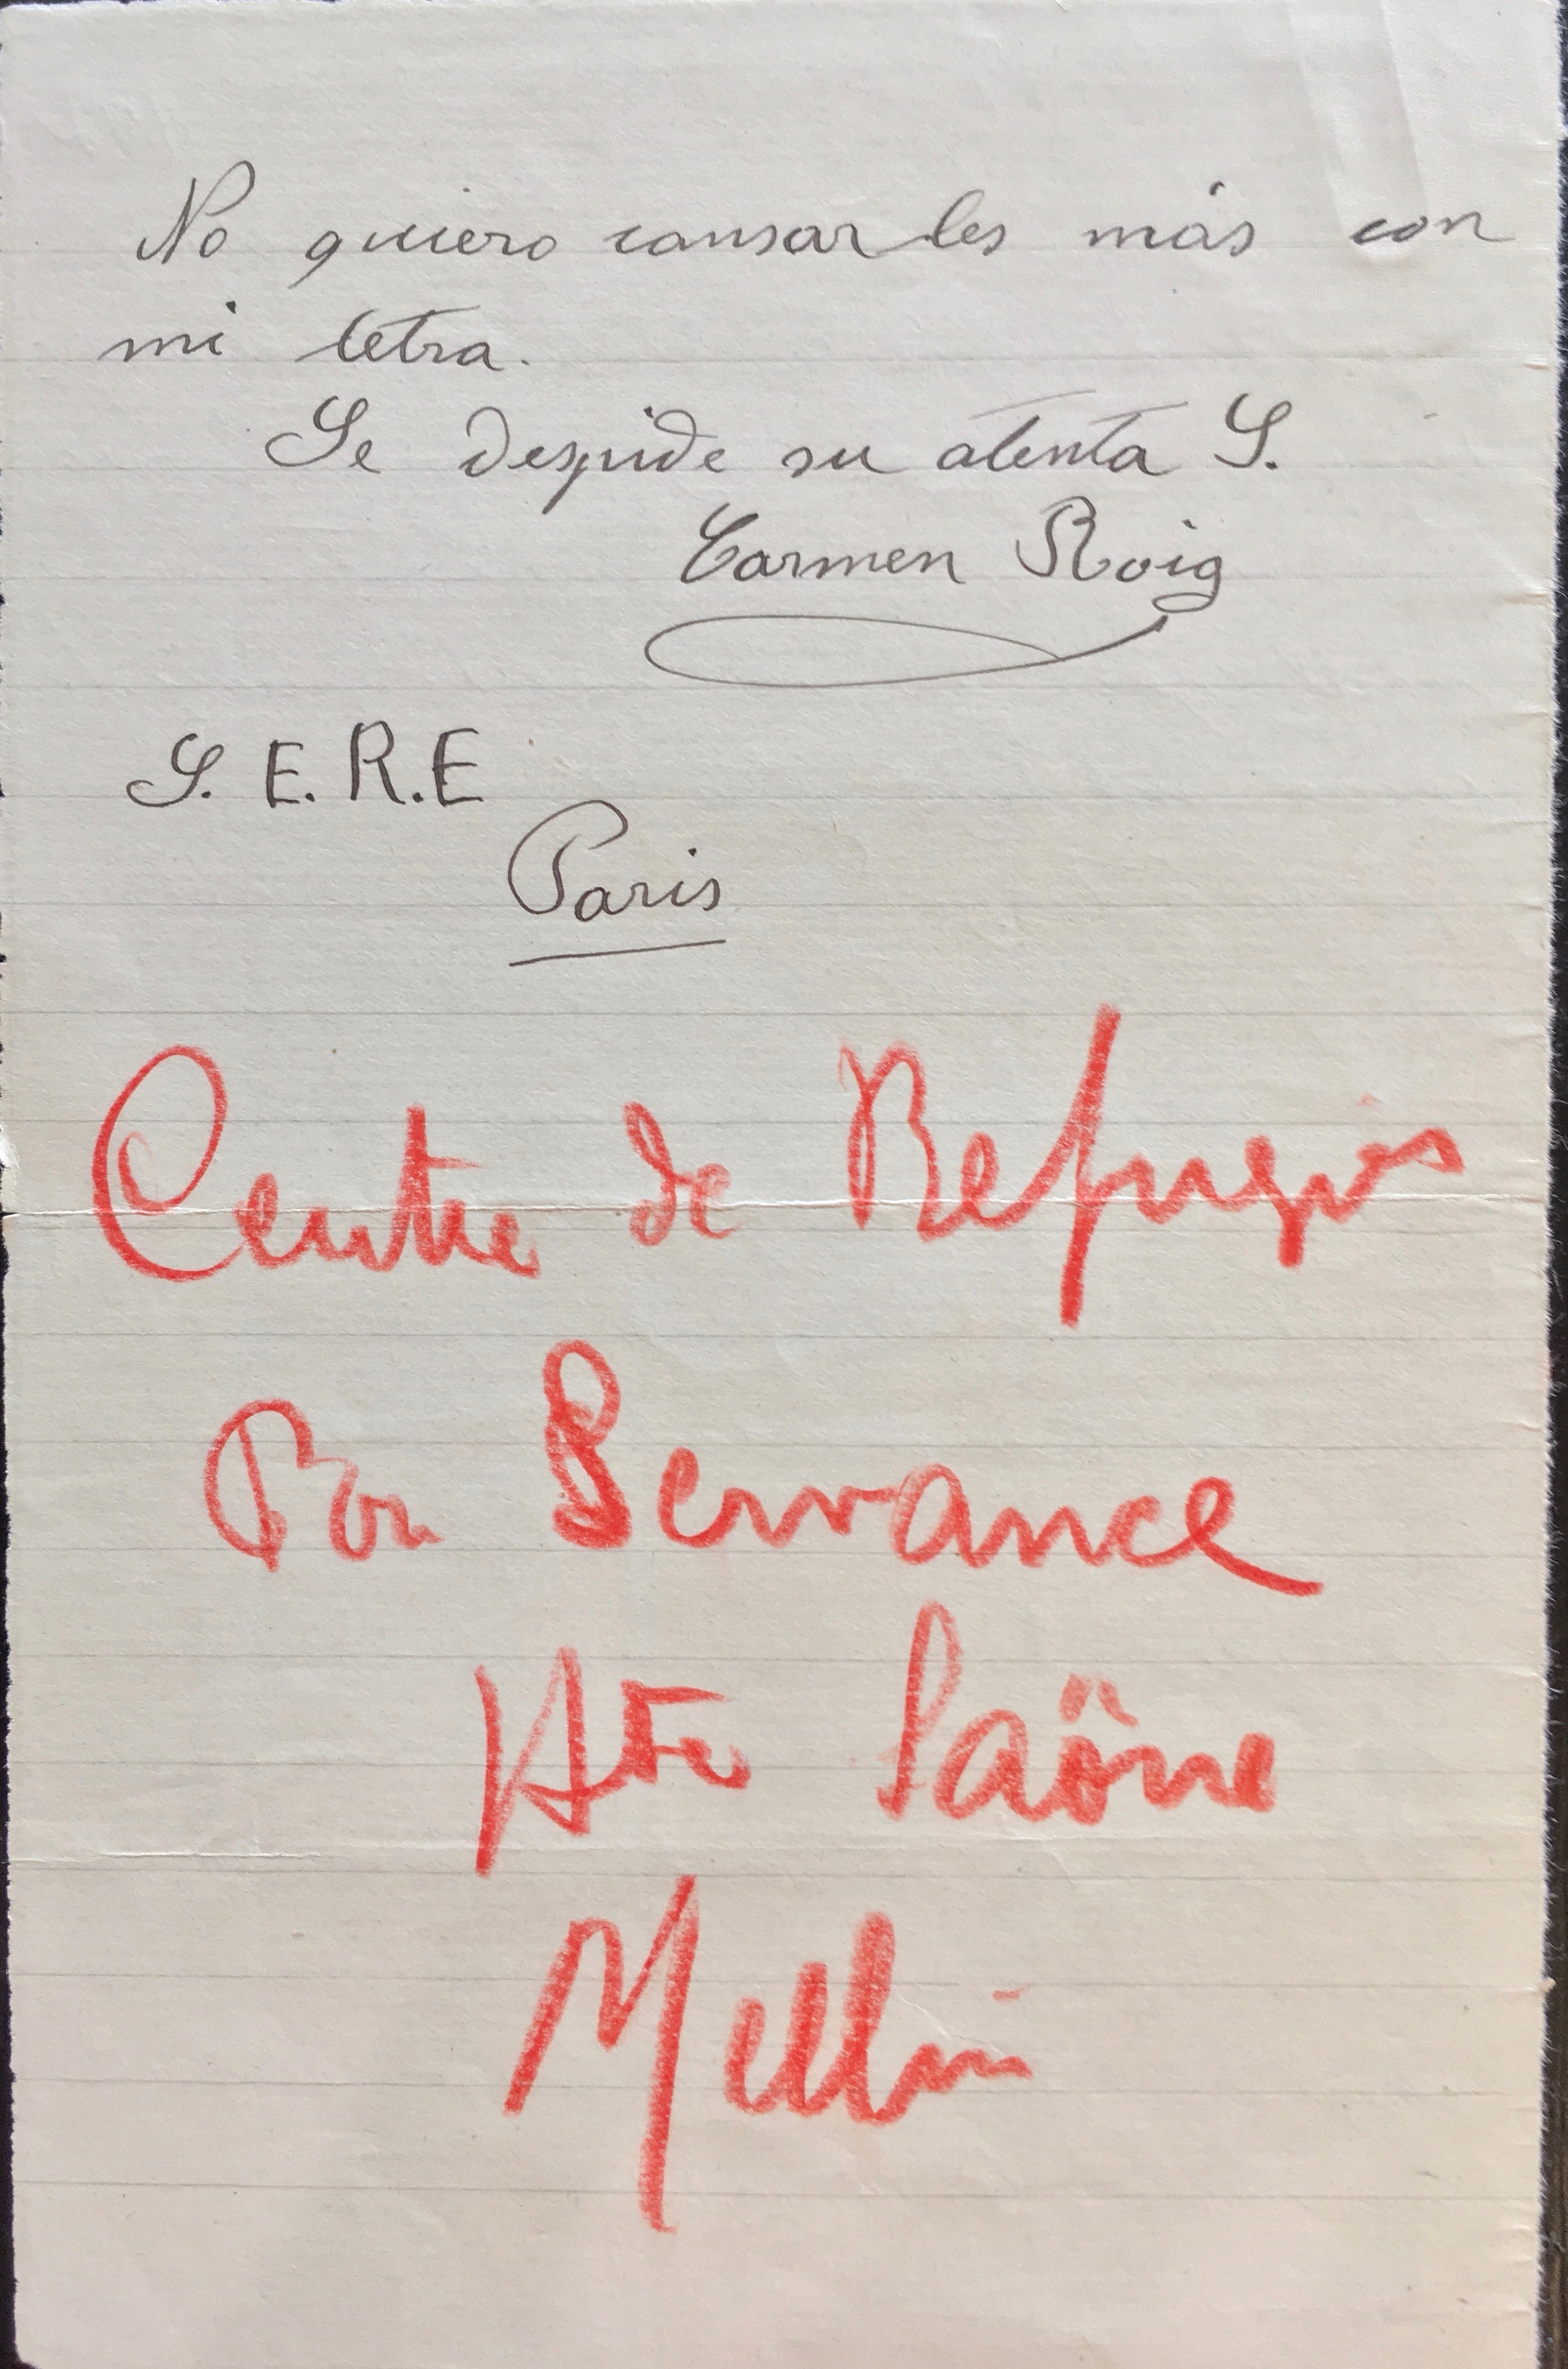 No quiero cansarles más con
mi letra.
Se despide su atenta S.
Carmen Roig
S. E. R. E
Paris
Centre de Refugios
Servance
Hte Saône